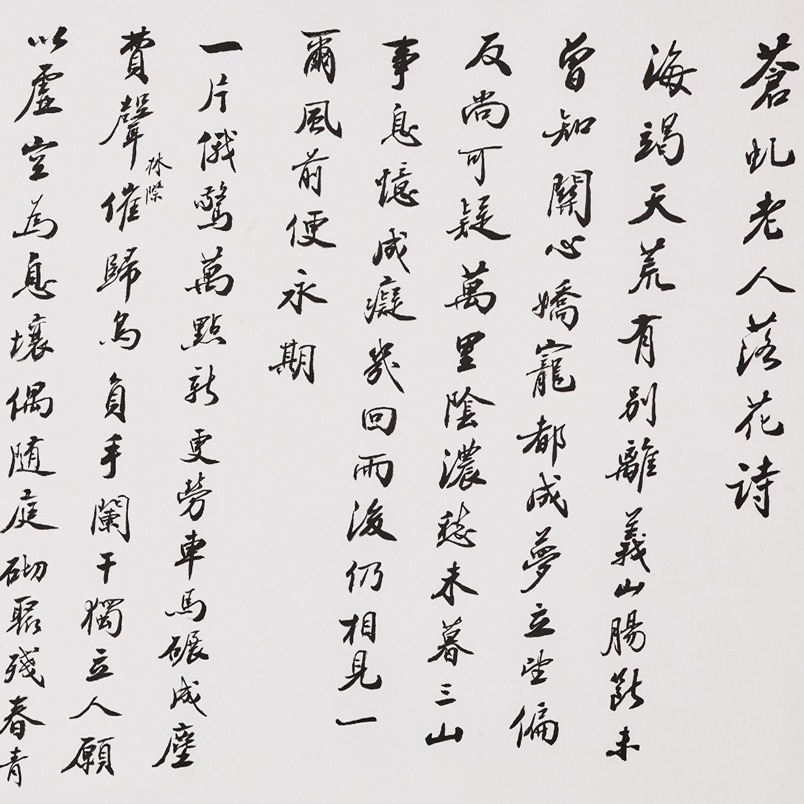 蒼虬老人落花詩
海竭天荒有別離義山腸斷未
曾知關心嬌寵都成夢立望偏
反尚可疑萬里陰濃愁未暮三山
事息憶成癡幾回雨後仍相見一
爾風前便永期
一片俄驚萬點新更勞車馬碾成塵
費聲催歸鳥負手闌干獨立人願
林際
以虛空為息壤偶隨庭砌聚殘春青